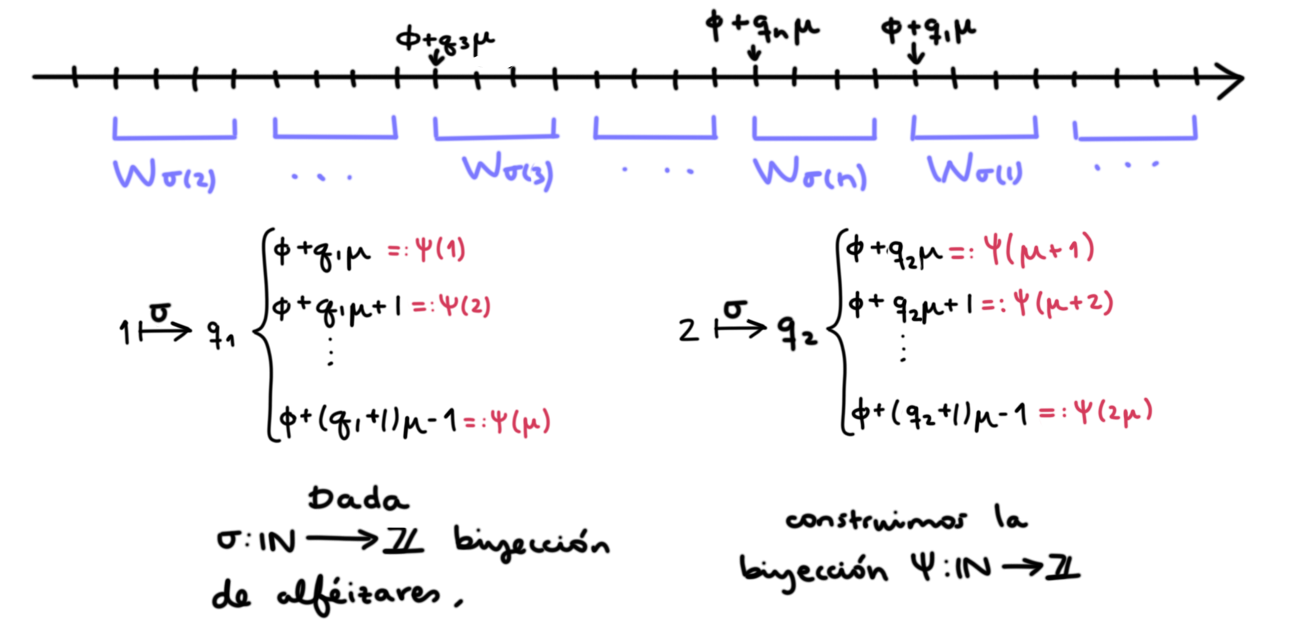 ϕ+q₃μ ϕ+qₙμ ϕ+q₁μ
W_σ(2) ... W_σ(3) ... W_σ(n) W_σ(1) ...
ϕ+q₁μ =: Ψ(1)
ϕ+q₁μ+1 =: Ψ(2)
1 ↦ q₁
σ
⋮
ϕ+(q₁+1)μ-1 =: Ψ(μ)
ϕ+q₂μ =: Ψ(μ+1)
ϕ+q₂μ+1 =: Ψ(μ+2)
2 ↦ q₂
σ
⋮
ϕ+(q₂+1)μ-1 =: Ψ(2μ)
Dada
σ: ℕ ⟶ ℤ biyección
de alféizares,
construimos la
biyección Ψ: ℕ → ℤ